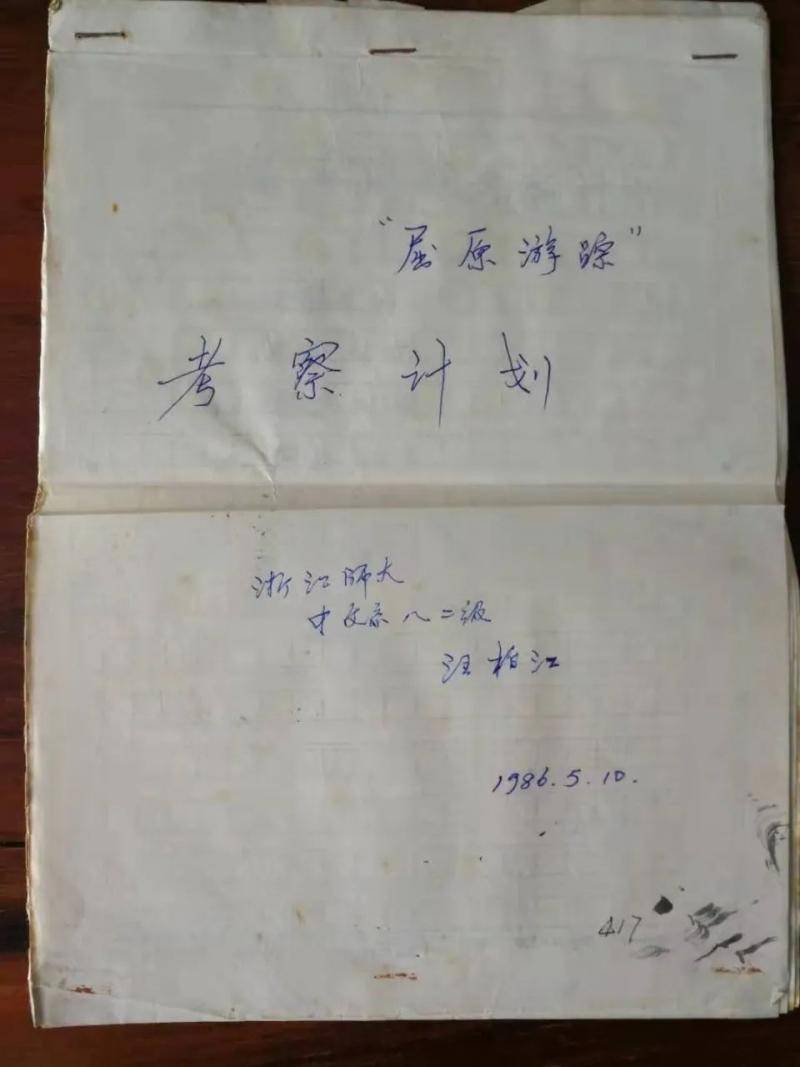 “屈原游踪”
考察计划
浙江师大
中文系八二级
汪柏江
1986.5.10.
417